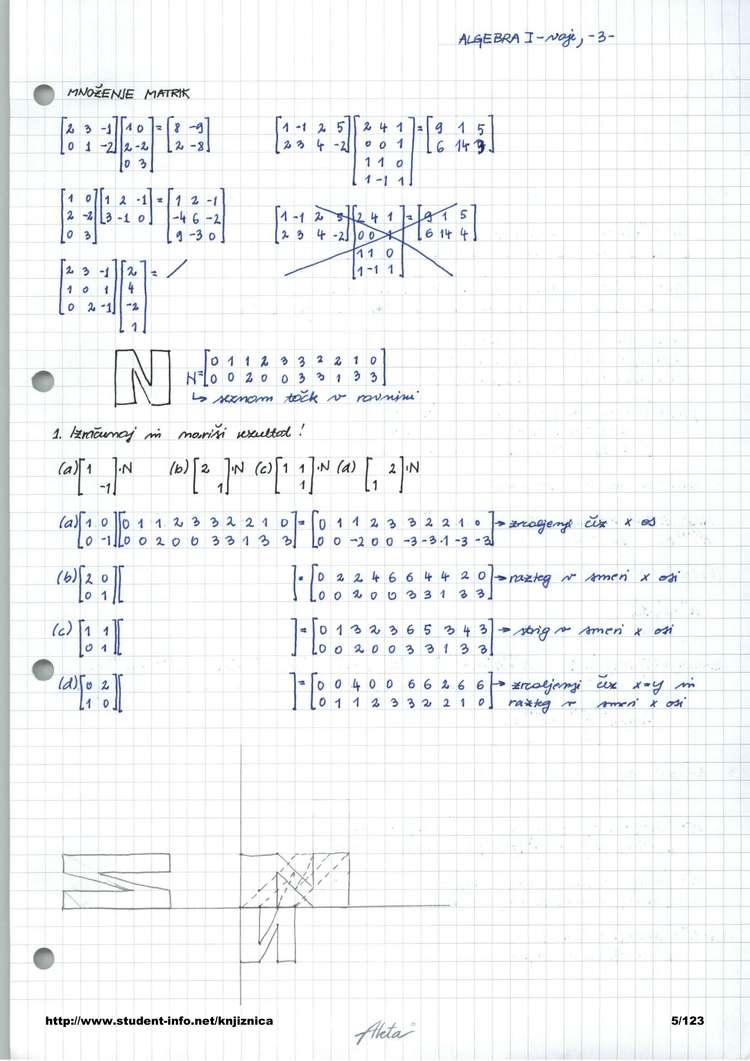 ALGEBRA I - vaje, -3-
MNOŽENJE MATRIK
[2 3 -1; 0 1 -2] [1 0; 2 -2; 0 3] = [8 -9; 2 -8]
[1 -1 2 5; 2 3 4 -2] [2 4 1; 0 0 1; 1 1 0; 1 -1 1] = [9 1 5; 6 14 3]
[1 0; 2 -2; 0 3] [1 2 -1; 3 -1 0] = [1 2 -1; -4 6 -2; 9 -3 0]
[1 -1 2 5; 2 3 4 -2] [2 4 1; 0 0 1; 1 1 0; 1 -1 1] = [9 1 5; 6 14 4]
[2 3 -1; 1 0 1; 0 2 -1] [2; 4; -2; 1] = /
N
N = [0 1 1 2 3 3 2 2 1 0; 0 0 2 0 0 3 3 1 3 3]
↳ seznam točk v ravnini
1. Izračunaj in nariši rezultat!
(a) [1 ; -1]·N (b) [2 ; 1]·N (c) [1 1; 1]·N (d) [ 2; 1 ]·N
(a) [1 0; 0 -1] [0 1 1 2 3 3 2 2 1 0; 0 0 2 0 0 3 3 1 3 3] = [0 1 1 2 3 3 2 2 1 0; 0 0 -2 0 0 -3 -3 -1 -3 -3] → zrcaljenje čez x os
(b) [2 0; 0 1] [ ] = [0 2 2 4 6 6 4 4 2 0; 0 0 2 0 0 3 3 1 3 3] → razteg v smeri x osi
(c) [1 1; 0 1] [ ] = [0 1 3 2 3 6 5 3 4 3; 0 0 2 0 0 3 3 1 3 3] → strig v smeri x osi
(d) [0 2; 1 0] [ ] = [0 0 4 0 0 6 6 2 6 6; 0 1 1 2 3 3 2 2 1 0] → zrcaljenje čez x=y in
razteg v smeri x osi
http://www.student-info.net/knjiznica
5/123
Akta